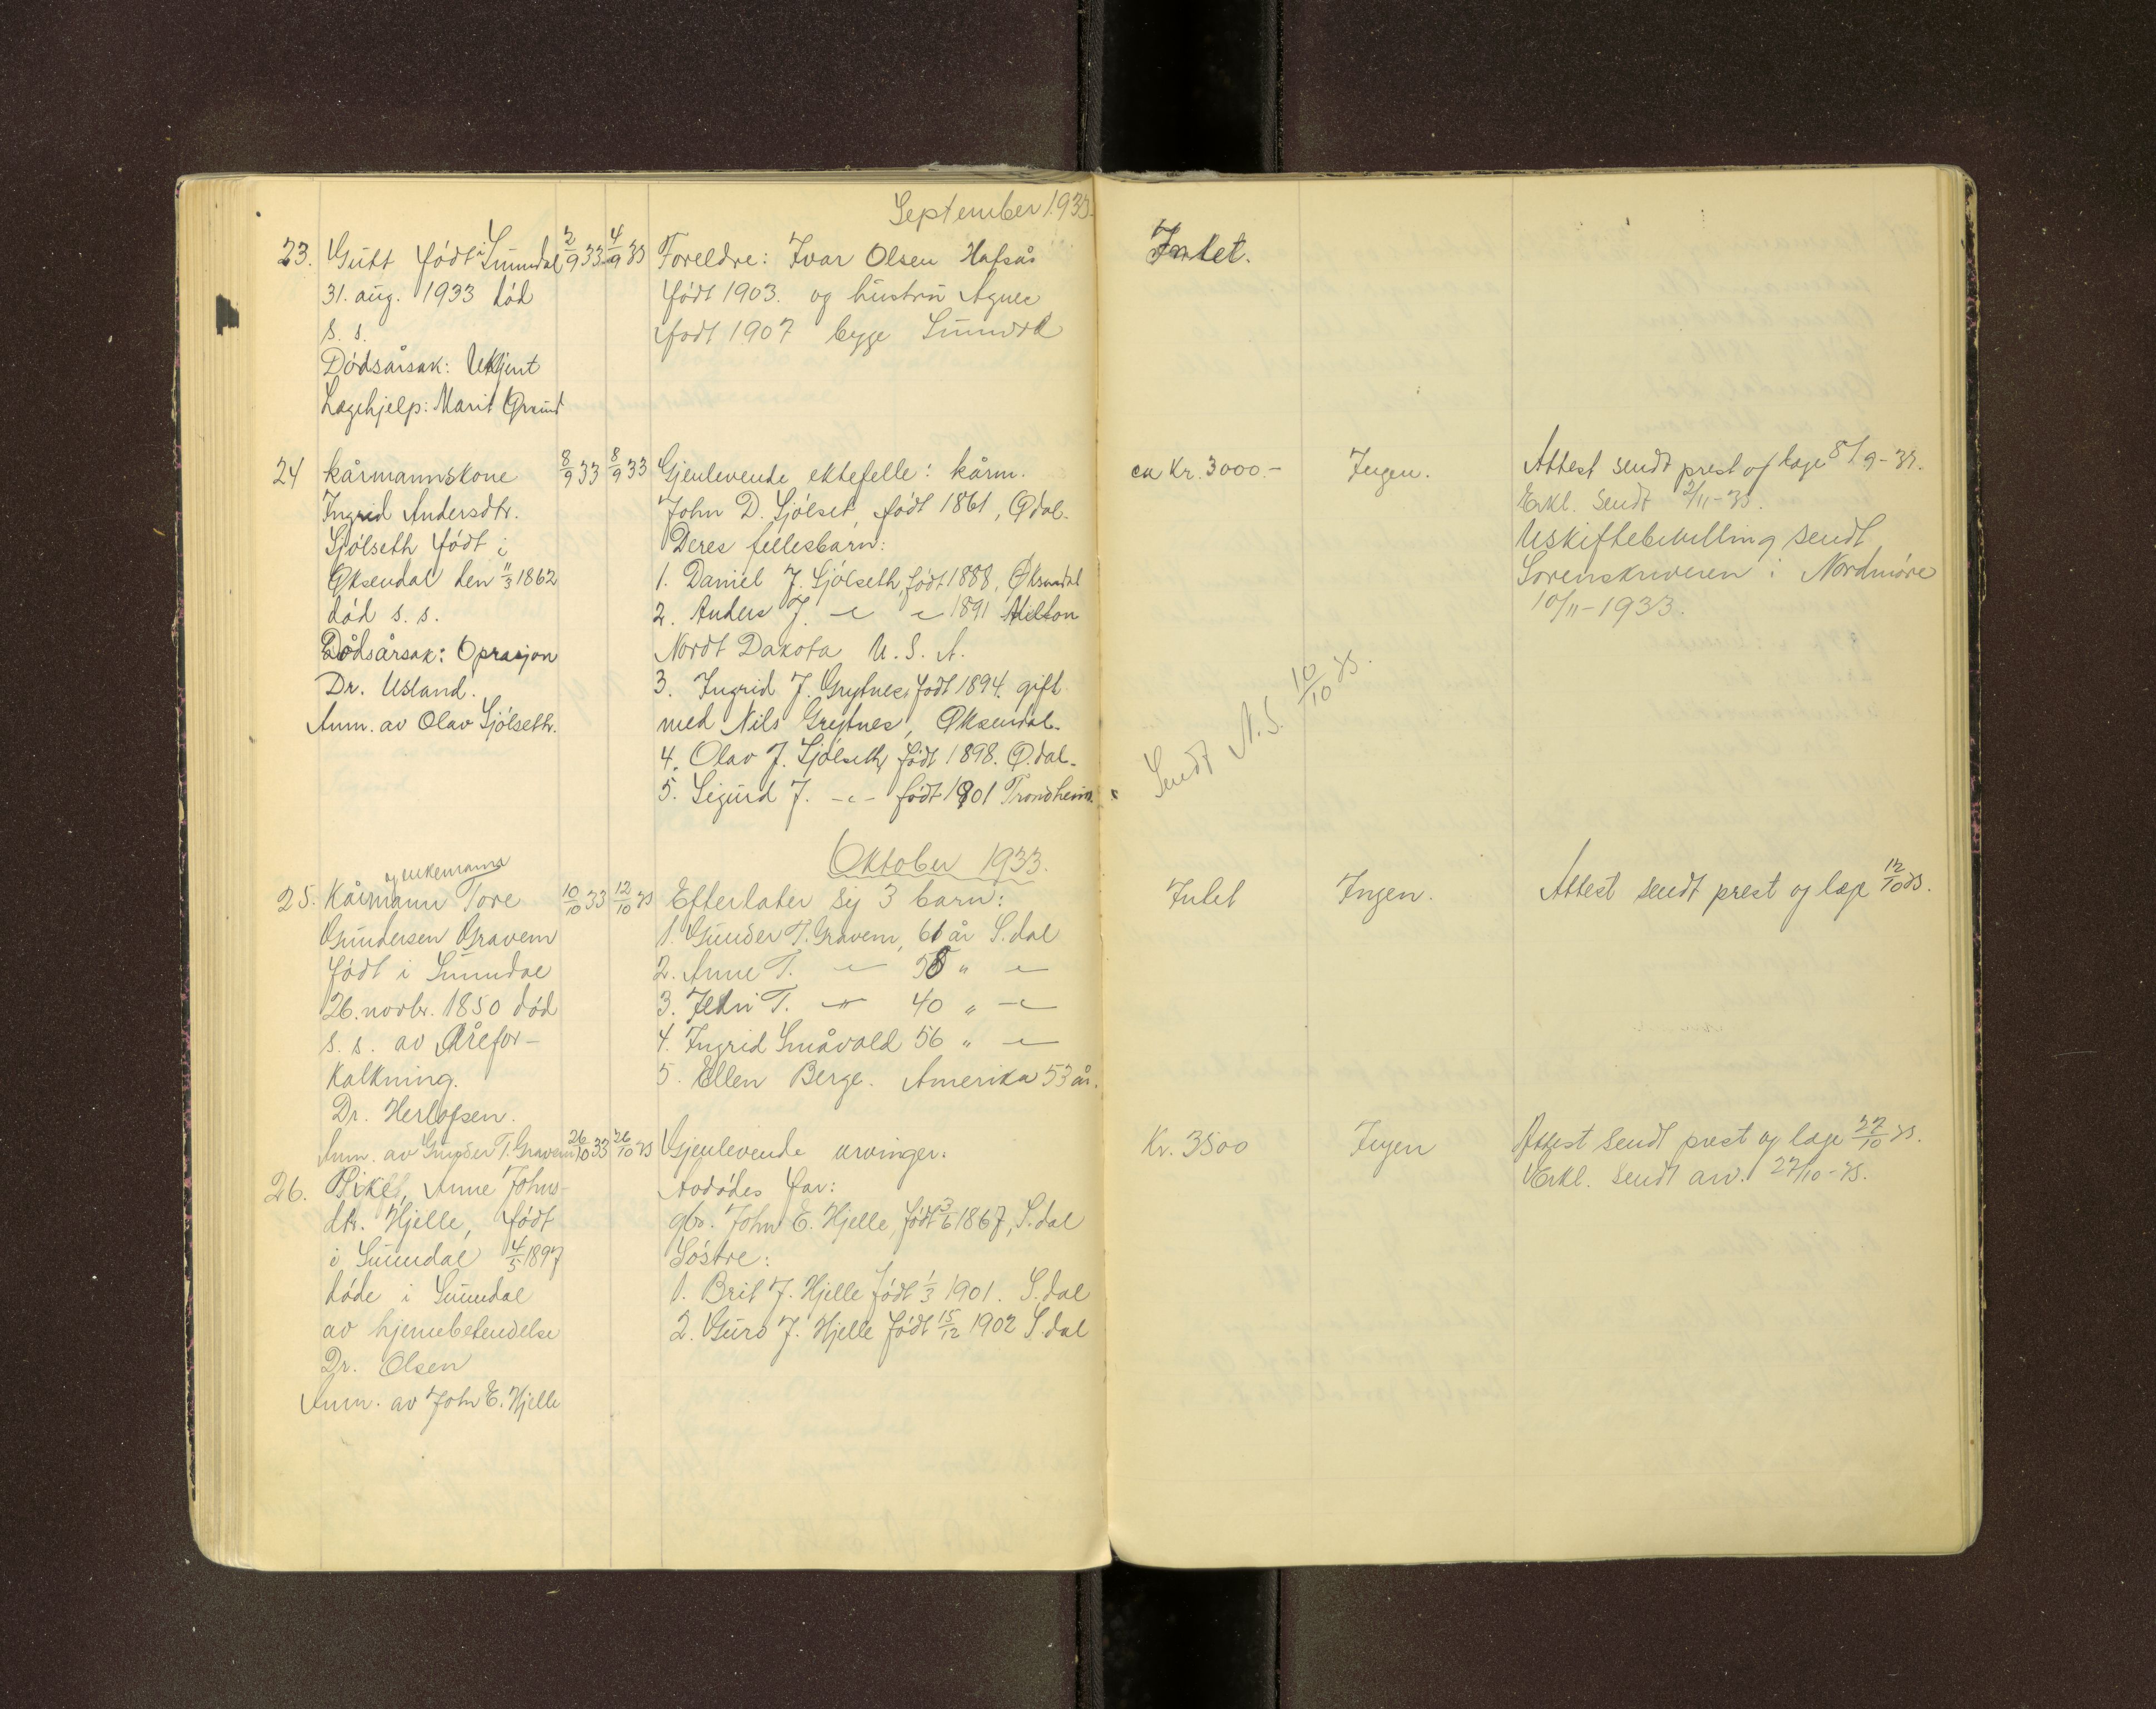 September 1933.
23. Gutt født i Sunndal 2/9 33 4/9 33 Foreldre: Ivar Olsen Hafsås Intet.
31. aug. 1933 død født 1903. og hustru Agnes
s. s. født 1907 begge Sunndal
Dødsårsak: Ukjent
Lægehjelp: Marit Grund
24 Kårmannskone 8/9 33 8/9 33 Gjenlevende ektefelle: kårm. ca Kr. 3000.- Ingen. Attest sendt prest og læge 8/9-33.
Ingrid Andersdtr. John D. Sjølset, født 1861, Ø.dal. Erkl. sendt 2/11-33.
Sjølseth født i Deres fellesbarn: Uskiftebevilling sendt
Øksendal den 11/3 1862 1. Daniel J. Sjølseth, født 1888, Øksendal Sorenskriveren i Nordmøre
død s. s. 2. Anders J. -"- -"- 1891 Hilton 10/11-1933.
Dødsårsak: Oprasjon Nordt Dakota U. S. A.
Dr. Usland. 3. Ingrid J. Grytnes født 1894. gift
Anm. av Olav Sjølseth. med Nils Grytnes, Øksendal.
4. Olav J. Sjølseth, født 1898. Ø.dal.
5. Sigurd J. -"- født 1901 Trondheim.
Sendt A. S. 10/10 33.
Oktober 1933.
og enkemann
25. Kårmann Tore 10/10 33 12/10 33 Efterlater sig 3 barn: Intet Ingen. Attest sendt prest og læge 12/10 33.
Gundersen Gravem 1. Gunder T. Gravem, 61 år S.dal
født i Sunndal 2. Anne T. -"- 58 " -"-
26. novbr. 1850 død 3. T. -"- 40 " -"-
s. s. av Årefor- 4. Ingrid Småvold 56 " -"-
kalkning. 5. Ellen Berge. Amerika 53 år.
Dr. Herlofsen.
Anm. av Gunder T. Gravem 26/10 33 26/10 33 Gjenlevende arvinger: Kr. 3500 Ingen Attest sendt prest og læge 27/10 33.
26. Pike, Anne Johns- Avdødes far: Erkl. sendt arv. 27/10-33.
dtr. Hjelle, født gbr. John E. Hjelle, født 3/6 1867, S.dal
i Sunndal 4/5 1897 Søstre:
døde i Sunndal 1. Brit J. Hjelle født 1/3 1901. S.dal
av hjernebetendelse 2. Guro J. Hjelle født 15/12 1902 S.dal
Dr. Olsen
Anm. av John E. Hjelle